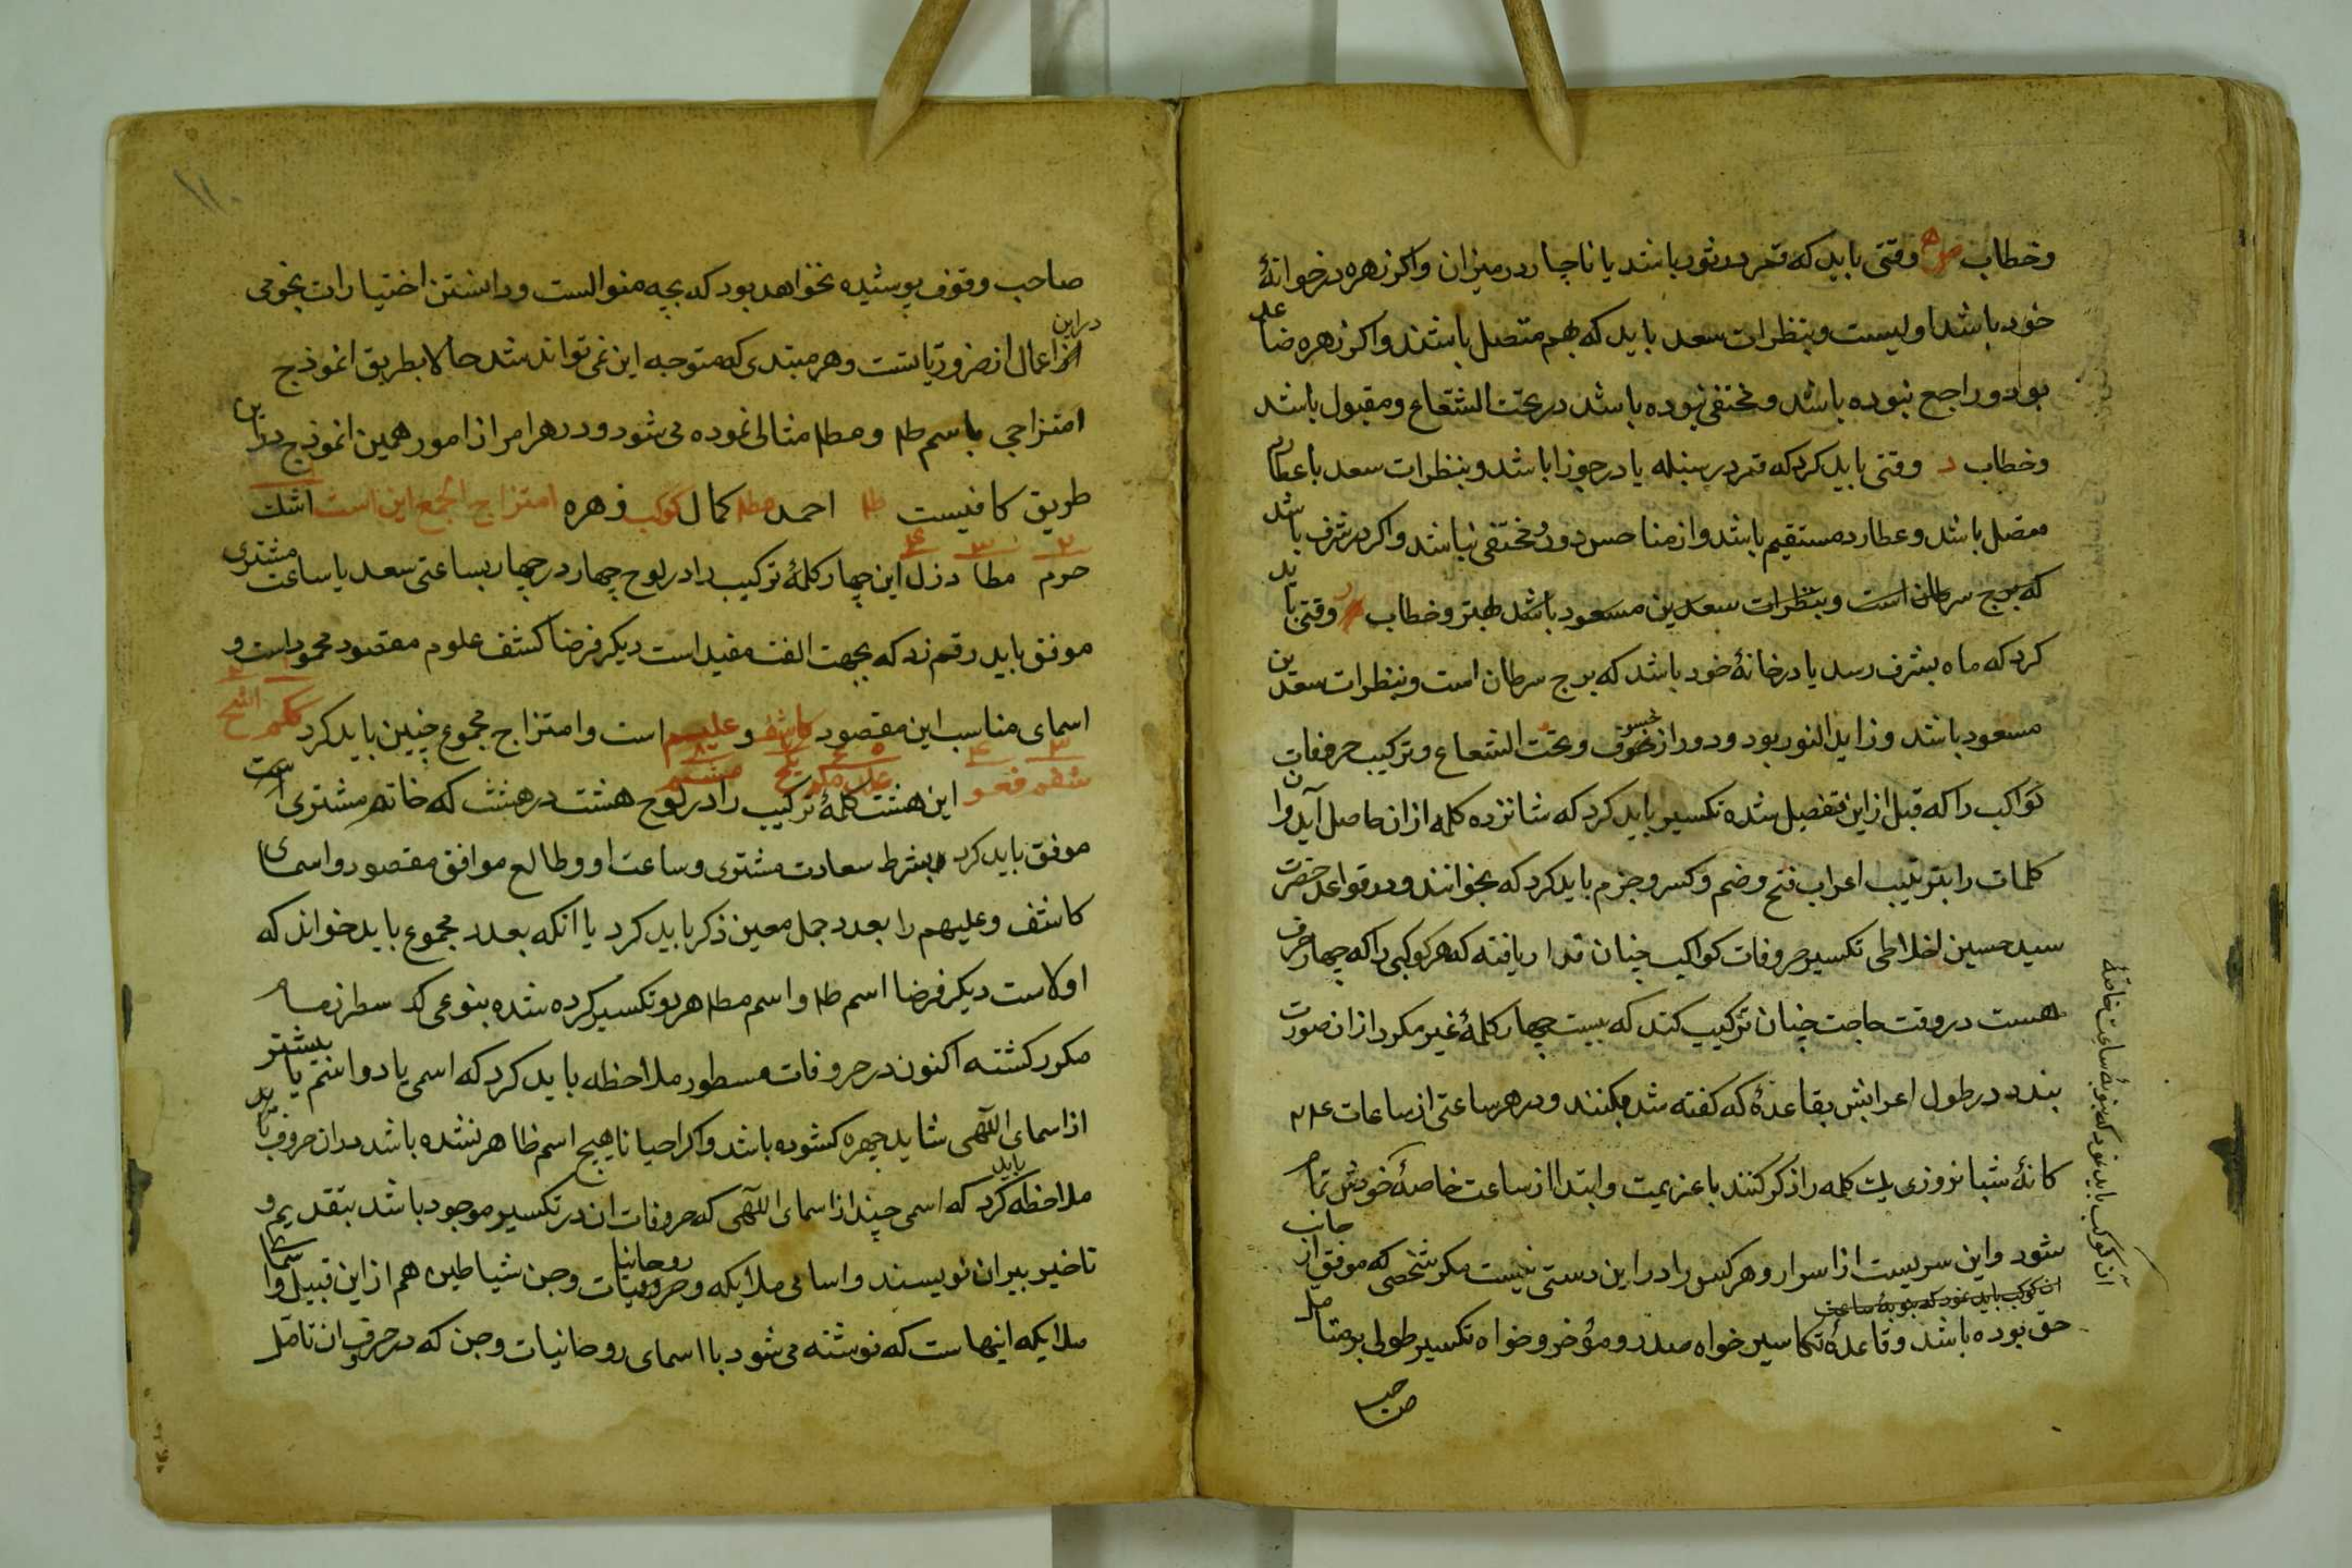 وخطاب وقتی باید که قمر در ثور باشد یا ناچار در میزان واکر زهره در خوانهٔ
خود باشد اولیست وبنظرات سعد باید که بهم متصل باشند واکر زهره ضاعد
بود وراجع نبوده باشد ومختفی نبوده باشد در تحت الشعاع ومقبول باشد
وخطاب د وقتی باید کرد که قمر در سنبله یا در جوزا باشد وبنظرات سعد با عطارد
متصل باشد وعطارد مستقیم باشد واز مناحس دور ومختفی نباشد واکر در شرف باشد
که برج سرطان است وبنظرات سعدین مسعود باشد بهتر وخطاب ر وقتی باید
کرد که ماه بشرف رسد یا در خانهٔ خود باشد که برج سرطان است وبنظرات سعدین
مسعود باشد وزاید النور بود ودور از خسوف وتحت الشعاع وترکیب حروفات
کواکب را که قبل از این تفصیل شده تکسیر باید کرد که شانزده کلمه از ان حاصل آید وان
کلمات را بترتیب اعراب فتح وضم وکسر وجزم باید کرد که بخوانند ودر قواعد حضرت
سید حسین اخلاطی تکسیر حروفات کواکب چنان قرار یافته که هر کوکبی را که چهار حرف
هست در وقت حاجت چنان ترکیب کنند که بیست چهار کلمهٔ غیر مکرر از ان صورت
بندد در طول اعرابش بقاعدهٔ که کفته شد میکنند ودر هر ساعتی از ساعات ۲۴
کانهٔ شبانروزی یک کلمه را ذکر کنند با عزیمت وابتدا از ساعت خاصهٔ خودش تمام
شود واین سریست از اسرار وهر کس را در این دستی نیست مکر شخصی که موفق از جانب
ان کوکب باید نمود که بنوبهٔ ساعت
حق بوده باشد وقاعدهٔ تکاسیر خواه صدر ومؤخر وخواه تکسیر طولی بر متامل
صاحب
آن کوکب باید نمود که بنوبهٔ ساعت خاصهٔ
صاحب وقوف پوشیده نخواهد بود که بچه منوالست ودانستن اختیارات نجومی
در این اعمال از ضروریاتست وهر مبتدی که متوجه این نمی تواند شد حالا بطریق انموذج
امتزاجی باسم طا ومطا مثالی نموده می شود ودر هر امر از امور همین انموذج در این
طریق کافیست طا احمد مطا کمال کوکب زهره امتزاج الجمع این است اشک
حرم مطا دزل این چهار کلمهٔ ترکیب را در لوح چهار در چهار بساعتی سعد یا ساعت مشتری
موفق باید رقم زد که بجهت الفت مفید است دیکر فرضا کشف علوم مقصود محمود است و
اسمای مناسب این مقصود کاشف وعلیم است وامتزاج مجموع چنین باید کرد
این هشت کلمهٔ ترکیب را در لوح هشت در هشت که خاتم مشتری است
موفق باید کرد بشرط سعادت مشتری وساعت او وطالع موافق مقصود واسمای
کاشف وعلیهم را بعدد جمل معین ذکر باید کرد یا انکه بعدد مجموع باید خواند که
اولاست دیکر فرضا اسم طا واسم مطا هر دو تکسیر کرده شده بنوعی که سطر زمام
مکرر کشته اکنون در حروفات مسطور ملاحظه باید کرد که اسمی یا دو اسم یا بیشتر
از اسمای اللهی شاید چهره کشوده باشد واکر احیانا هیچ اسم ظاهر نشده باشد در ان حروف باید
ملاحظه باید کرد که اسمی چند از اسمای اللهی که حروفات ان در تکسیر موجود باشد بتقدیم و
تاخیر بیران نویسند واسامی ملایکه وروحانیات وجن شیاطین هم از این قبیل واسمای
ملایکه اینهاست که نوشته می شود با اسمای روحانیات وجن که در حروف ان تامل